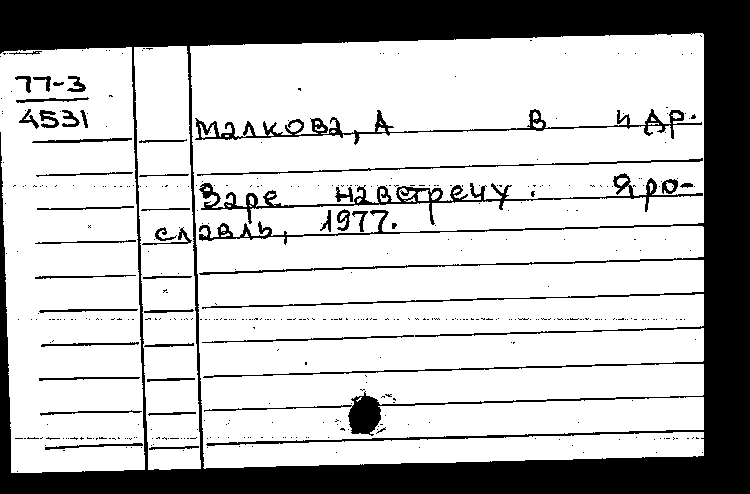 77-3
4531
Малкова, А В и др.
Заре навстречу. Яро-
славль, 1977.